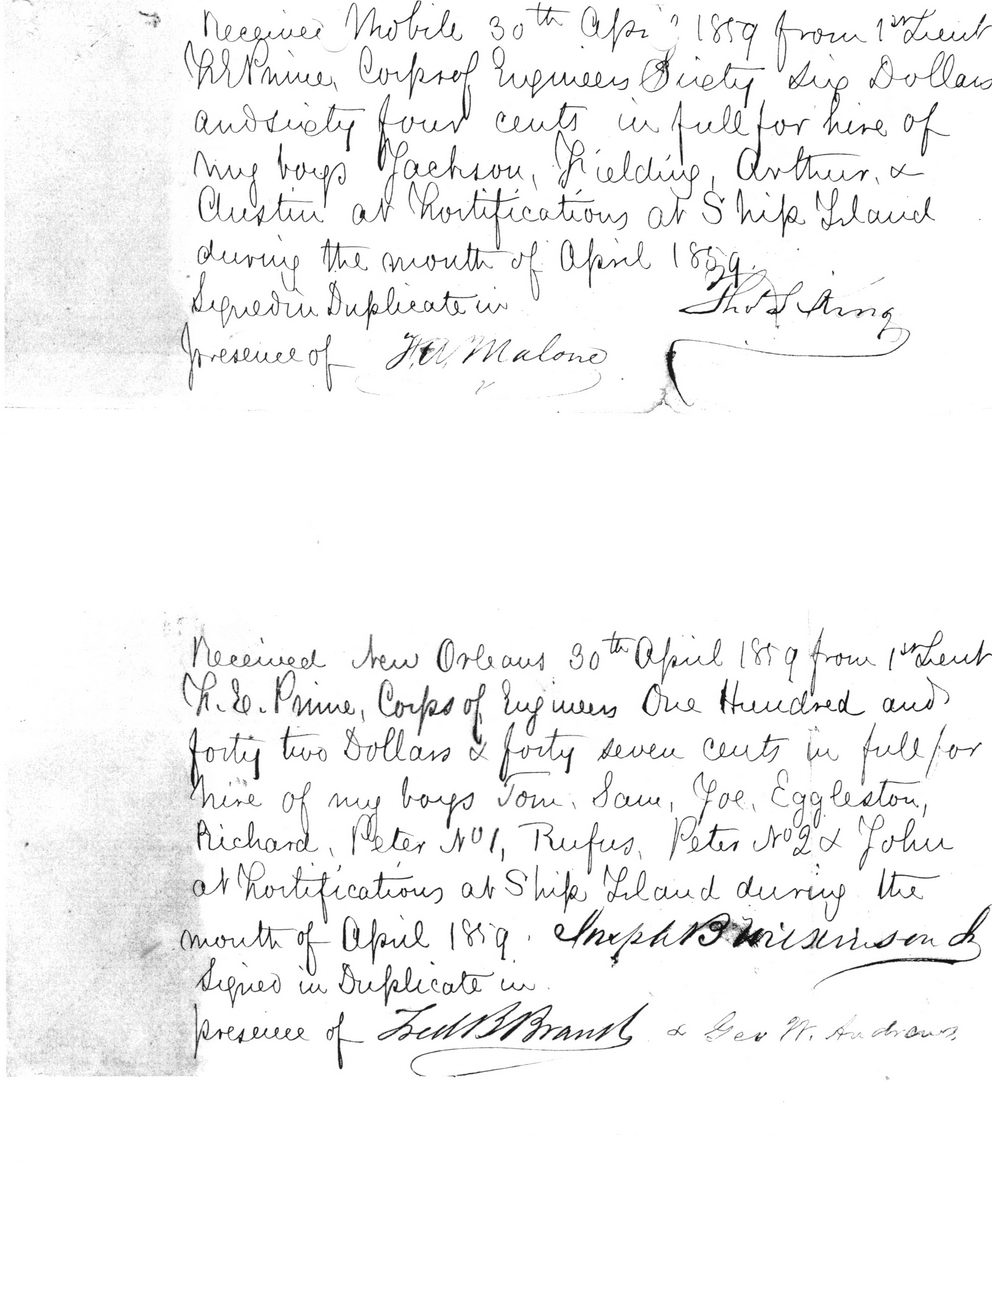 Received Mobile 30th April 1859 from 1st Lieut
F.E. Prime, Corps of Engineers Sixty Six Dollars
and sixty four cents in full for hire of
my boys Jackson, Fielding, Arthur, &
Austin at Fortifications at Ship Island
during the month of April 1859.
Signed in Duplicate in Thos S. King
presence of F.A. Malone
Received New Orleans 30th April 1859 from 1st Lieut
F. E. Prime, Corps of Engineers One Hundred and
forty two Dollars & forty seven cents in full for
hire of my boys Tom, Sam, Joe, Eggleston,
Richard, Peter No 1, Rufus, Peter No 2 & John
at Fortifications at Ship Island during the
month of April 1859. Joseph B Wilkinson Jr
Signed in Duplicate in
presence of Fred B Brand & Geo W. Andrews.